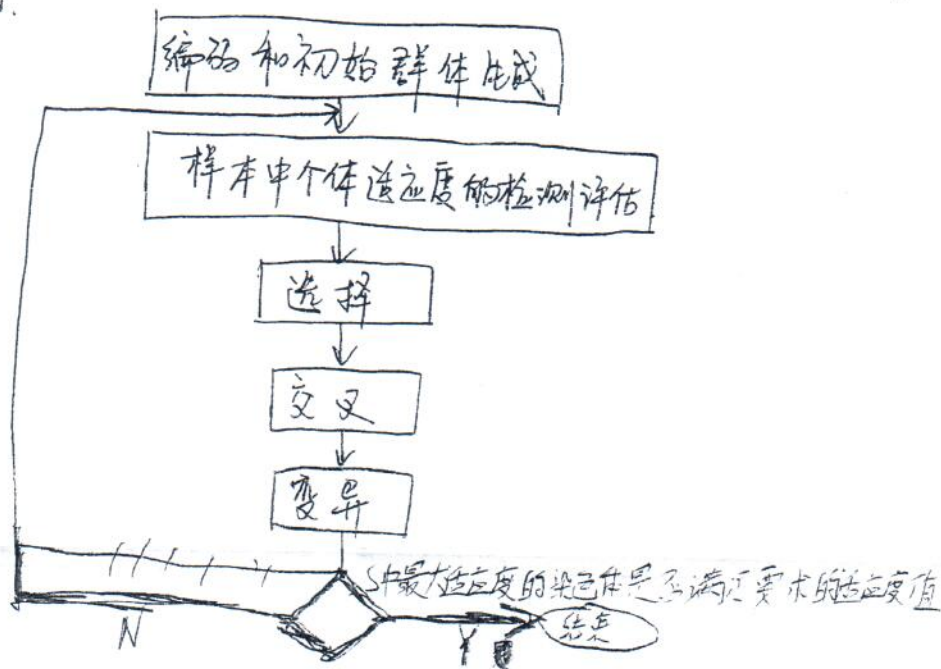 编码和初始群体生成
样本中个体适应度的检测评估
选择
交叉
变异
S中最大适应度的染色体是否满足要求的适应度值
N
Y
结束